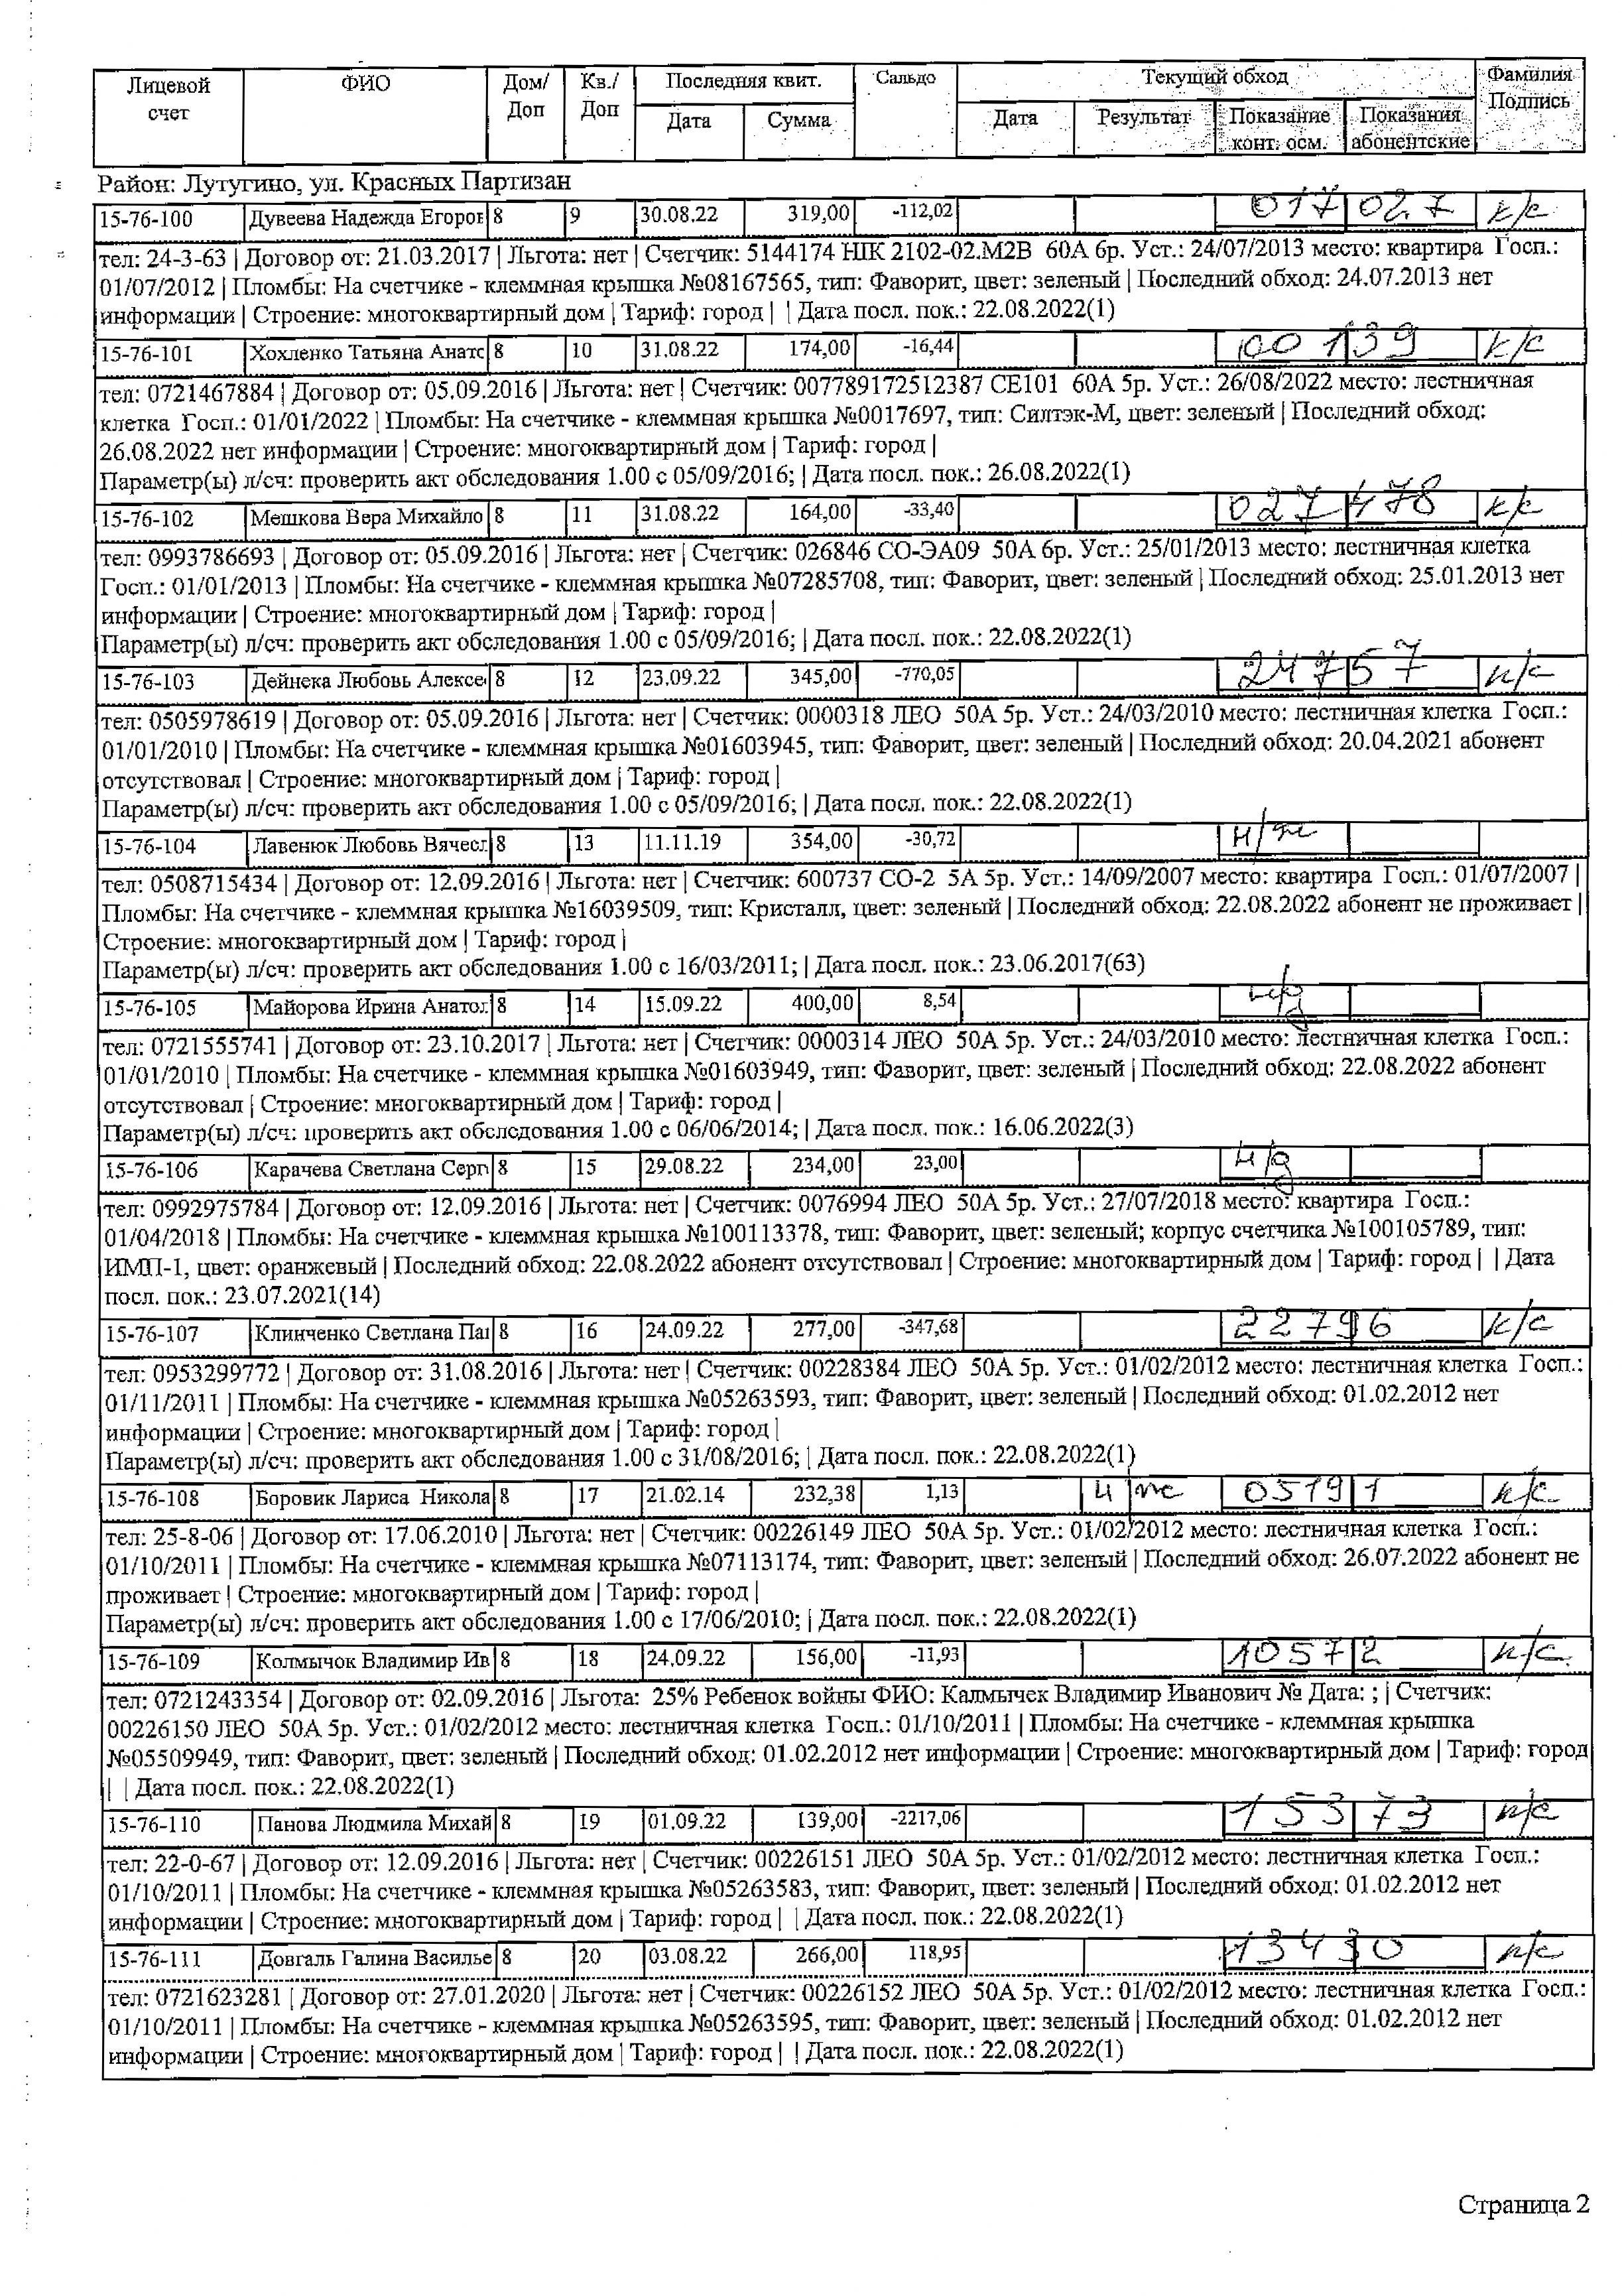 Лицевой счет ФИО Дом/ Доп Кв./ Доп Последняя квит. Сальдо Текущий обход Фамилия Подпись
Дата Сумма Дата Результат Показание конт. осм. Показания абонентские
Район: Лутугино, ул. Красных Партизан
15-76-100 Дувеева Надежда Егоров 8 9 30.08.22 319,00 -112,02 017027 к/с
тел: 24-3-63 | Договор от: 21.03.2017 | Льгота: нет | Счетчик: 5144174 НІК 2102-02.М2В 60А 6р. Уст.: 24/07/2013 место: квартира Госп.:
01/07/2012 | Пломбы: На счетчике - клеммная крышка №08167565, тип: Фаворит, цвет: зеленый | Последний обход: 24.07.2013 нет
информации | Строение: многоквартирный дом | Тариф: город | | Дата посл. пок.: 22.08.2022(1)
15-76-101 Хохленко Татьяна Анатс 8 10 31.08.22 174,00 -16,44 00139 к/с
тел: 0721467884 | Договор от: 05.09.2016 | Льгота: нет | Счетчик: 007789172512387 СЕ101 60А 5р. Уст.: 26/08/2022 место: лестничная
клетка Госп.: 01/01/2022 | Пломбы: На счетчике - клеммная крышка №0017697, тип: Силтэк-М, цвет: зеленый | Последний обход:
26.08.2022 нет информации | Строение: многоквартирный дом | Тариф: город |
Параметр(ы) л/сч: проверить акт обследования 1.00 с 05/09/2016; | Дата посл. пок.: 26.08.2022(1)
15-76-102 Мешкова Вера Михайло 8 11 31.08.22 164,00 -33,40 027478 к/с
тел: 0993786693 | Договор от: 05.09.2016 | Льгота: нет | Счетчик: 026846 СО-ЭА09 50А 6р. Уст.: 25/01/2013 место: лестничная клетка
Госп.: 01/01/2013 | Пломбы: На счетчике - клеммная крышка №07285708, тип: Фаворит, цвет: зеленый | Последний обход: 25.01.2013 нет
информации | Строение: многоквартирный дом | Тариф: город |
Параметр(ы) л/сч: проверить акт обследования 1.00 с 05/09/2016; | Дата посл. пок.: 22.08.2022(1)
15-76-103 Дейнека Любовь Алексе 8 12 23.09.22 345,00 -770,05 24757 к/с
тел: 0505978619 | Договор от: 05.09.2016 | Льгота: нет | Счетчик: 0000318 ЛЕО 50А 5р. Уст.: 24/03/2010 место: лестничная клетка Госп.:
01/01/2010 | Пломбы: На счетчике - клеммная крышка №01603945, тип: Фаворит, цвет: зеленый | Последний обход: 20.04.2021 абонент
отсутствовал | Строение: многоквартирный дом | Тариф: город |
Параметр(ы) л/сч: проверить акт обследования 1.00 с 05/09/2016; | Дата посл. пок.: 22.08.2022(1)
15-76-104 Лавенюк Любовь Вячесл 8 13 11.11.19 354,00 -30,72 н/ж
тел: 0508715434 | Договор от: 12.09.2016 | Льгота: нет | Счетчик: 600737 СО-2 5А 5р. Уст.: 14/09/2007 место: квартира Госп.: 01/07/2007 |
Пломбы: На счетчике - клеммная крышка №16039509, тип: Кристалл, цвет: зеленый | Последний обход: 22.08.2022 абонент не проживает |
Строение: многоквартирный дом | Тариф: город |
Параметр(ы) л/сч: проверить акт обследования 1.00 с 16/03/2011; | Дата посл. пок.: 23.06.2017(63)
15-76-105 Майорова Ирина Анатол 8 14 15.09.22 400,00 8,54 н/д
тел: 0721555741 | Договор от: 23.10.2017 | Льгота: нет | Счетчик: 0000314 ЛЕО 50А 5р. Уст.: 24/03/2010 место: лестничная клетка Госп.:
01/01/2010 | Пломбы: На счетчике - клеммная крышка №01603949, тип: Фаворит, цвет: зеленый | Последний обход: 22.08.2022 абонент
отсутствовал | Строение: многоквартирный дом | Тариф: город |
Параметр(ы) л/сч: проверить акт обследования 1.00 с 06/06/2014; | Дата посл. пок.: 16.06.2022(3)
15-76-106 Карачева Светлана Серг 8 15 29.08.22 234,00 23,00 н/д
тел: 0992975784 | Договор от: 12.09.2016 | Льгота: нет | Счетчик: 0076994 ЛЕО 50А 5р. Уст.: 27/07/2018 место: квартира Госп.:
01/04/2018 | Пломбы: На счетчике - клеммная крышка №100113378, тип: Фаворит, цвет: зеленый; корпус счетчика №100105789, тип:
ИМП-1, цвет: оранжевый | Последний обход: 22.08.2022 абонент отсутствовал | Строение: многоквартирный дом | Тариф: город | | Дата
посл. пок.: 23.07.2021(14)
15-76-107 Клинченко Светлана Паг 8 16 24.09.22 277,00 -347,68 22796 к/с
тел: 0953299772 | Договор от: 31.08.2016 | Льгота: нет | Счетчик: 00228384 ЛЕО 50А 5р. Уст.: 01/02/2012 место: лестничная клетка Госп.:
01/11/2011 | Пломбы: На счетчике - клеммная крышка №05263593, тип: Фаворит, цвет: зеленый | Последний обход: 01.02.2012 нет
информации | Строение: многоквартирный дом | Тариф: город |
Параметр(ы) л/сч: проверить акт обследования 1.00 с 31/08/2016; | Дата посл. пок.: 22.08.2022(1)
15-76-108 Боровик Лариса Никола 8 17 21.02.14 232,38 1,13 н/ж 05191 к/с
тел: 25-8-06 | Договор от: 17.06.2010 | Льгота: нет | Счетчик: 00226149 ЛЕО 50А 5р. Уст.: 01/02/2012 место: лестничная клетка Госп.:
01/10/2011 | Пломбы: На счетчике - клеммная крышка №07113174, тип: Фаворит, цвет: зеленый | Последний обход: 26.07.2022 абонент не
проживает | Строение: многоквартирный дом | Тариф: город |
Параметр(ы) л/сч: проверить акт обследования 1.00 с 17/06/2010; | Дата посл. пок.: 22.08.2022(1)
15-76-109 Колмычок Владимир Ив 8 18 24.09.22 156,00 -11,93 10572 к/с
тел: 0721243354 | Договор от: 02.09.2016 | Льгота: 25% Ребенок войны ФИО: Калмычек Владимир Иванович № Дата: ; | Счетчик:
00226150 ЛЕО 50А 5р. Уст.: 01/02/2012 место: лестничная клетка Госп.: 01/10/2011 | Пломбы: На счетчике - клеммная крышка
№05509949, тип: Фаворит, цвет: зеленый | Последний обход: 01.02.2012 нет информации | Строение: многоквартирный дом | Тариф: город
| | Дата посл. пок.: 22.08.2022(1)
15-76-110 Панова Людмила Михай 8 19 01.09.22 139,00 -2217,06 15373 к/с
тел: 22-0-67 | Договор от: 12.09.2016 | Льгота: нет | Счетчик: 00226151 ЛЕО 50А 5р. Уст.: 01/02/2012 место: лестничная клетка Госп.:
01/10/2011 | Пломбы: На счетчике - клеммная крышка №05263583, тип: Фаворит, цвет: зеленый | Последний обход: 01.02.2012 нет
информации | Строение: многоквартирный дом | Тариф: город | | Дата посл. пок.: 22.08.2022(1)
15-76-111 Довгаль Галина Василье 8 20 03.08.22 266,00 118,95 13430 к/с
тел: 0721623281 | Договор от: 27.01.2020 | Льгота: нет | Счетчик: 00226152 ЛЕО 50А 5р. Уст.: 01/02/2012 место: лестничная клетка Госп.:
01/10/2011 | Пломбы: На счетчике - клеммная крышка №05263595, тип: Фаворит, цвет: зеленый | Последний обход: 01.02.2012 нет
информации | Строение: многоквартирный дом | Тариф: город | | Дата посл. пок.: 22.08.2022(1)
Страница 2